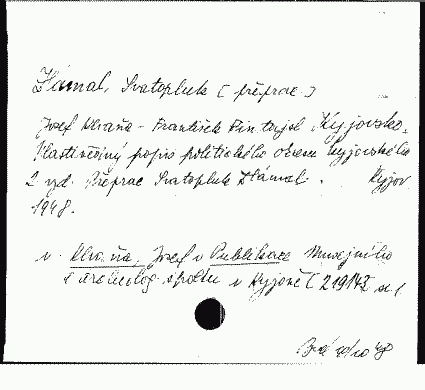 Hámal, Svatopluk [přeprac.]
Josef Klvaňa - František Pintajsl Kyjovsko.
Vlastivědný popis politického okresu kyjovského
2. vyd. Přeprac Svatopluk Hámal. Kyjov
1948.
v. Klvaňa, Josef v Publikace Musejního
a archeolog. spolku v Kyjově [219147 sv. 1.